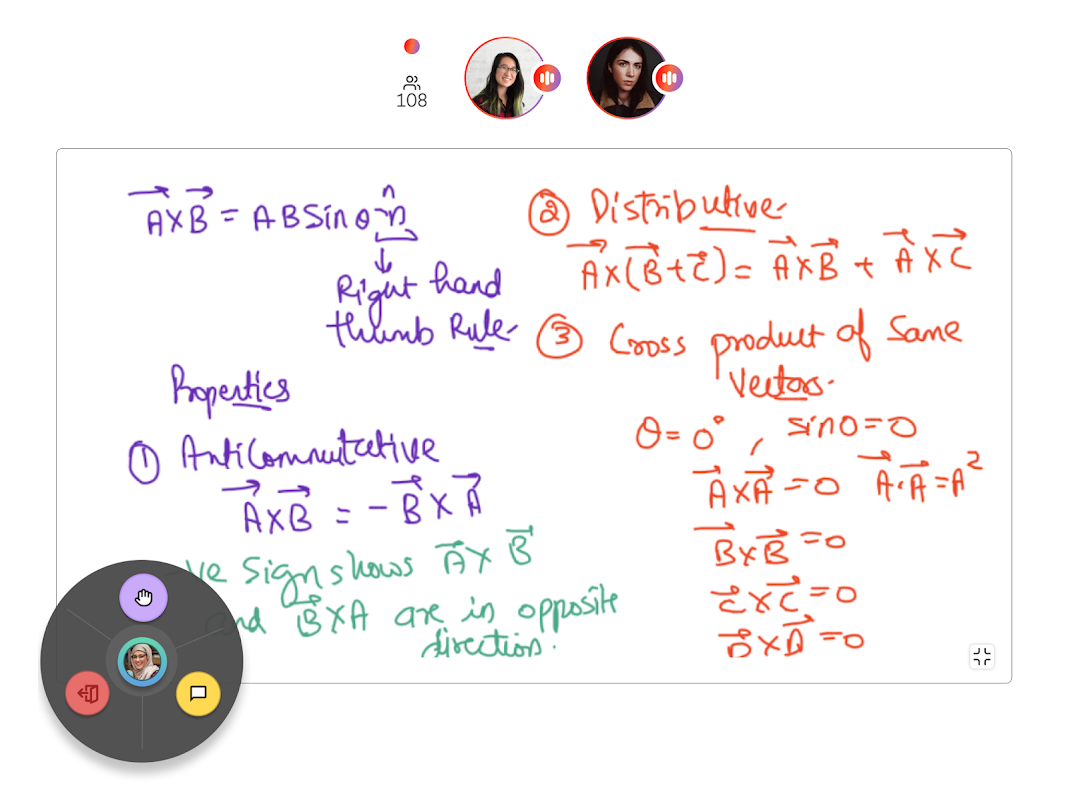 108
A⃗ × B⃗ = A B Sin θ n̂
↓
Right hand
thumb Rule
Properties
① Anticommutative
A⃗ × B⃗ = - B⃗ × A⃗
ve Sign shows A⃗ × B⃗
and B⃗ × A are in opposite
direction.
② Distributive
A⃗ × (B⃗ + C⃗) = A⃗ × B⃗ + A⃗ × C⃗
③ Cross product of Same
Vectors.
θ = 0° , sin 0 = 0
A⃗ × A⃗ = 0 A⃗ . A⃗ = A²
B⃗ × B⃗ = 0
C⃗ × C⃗ = 0